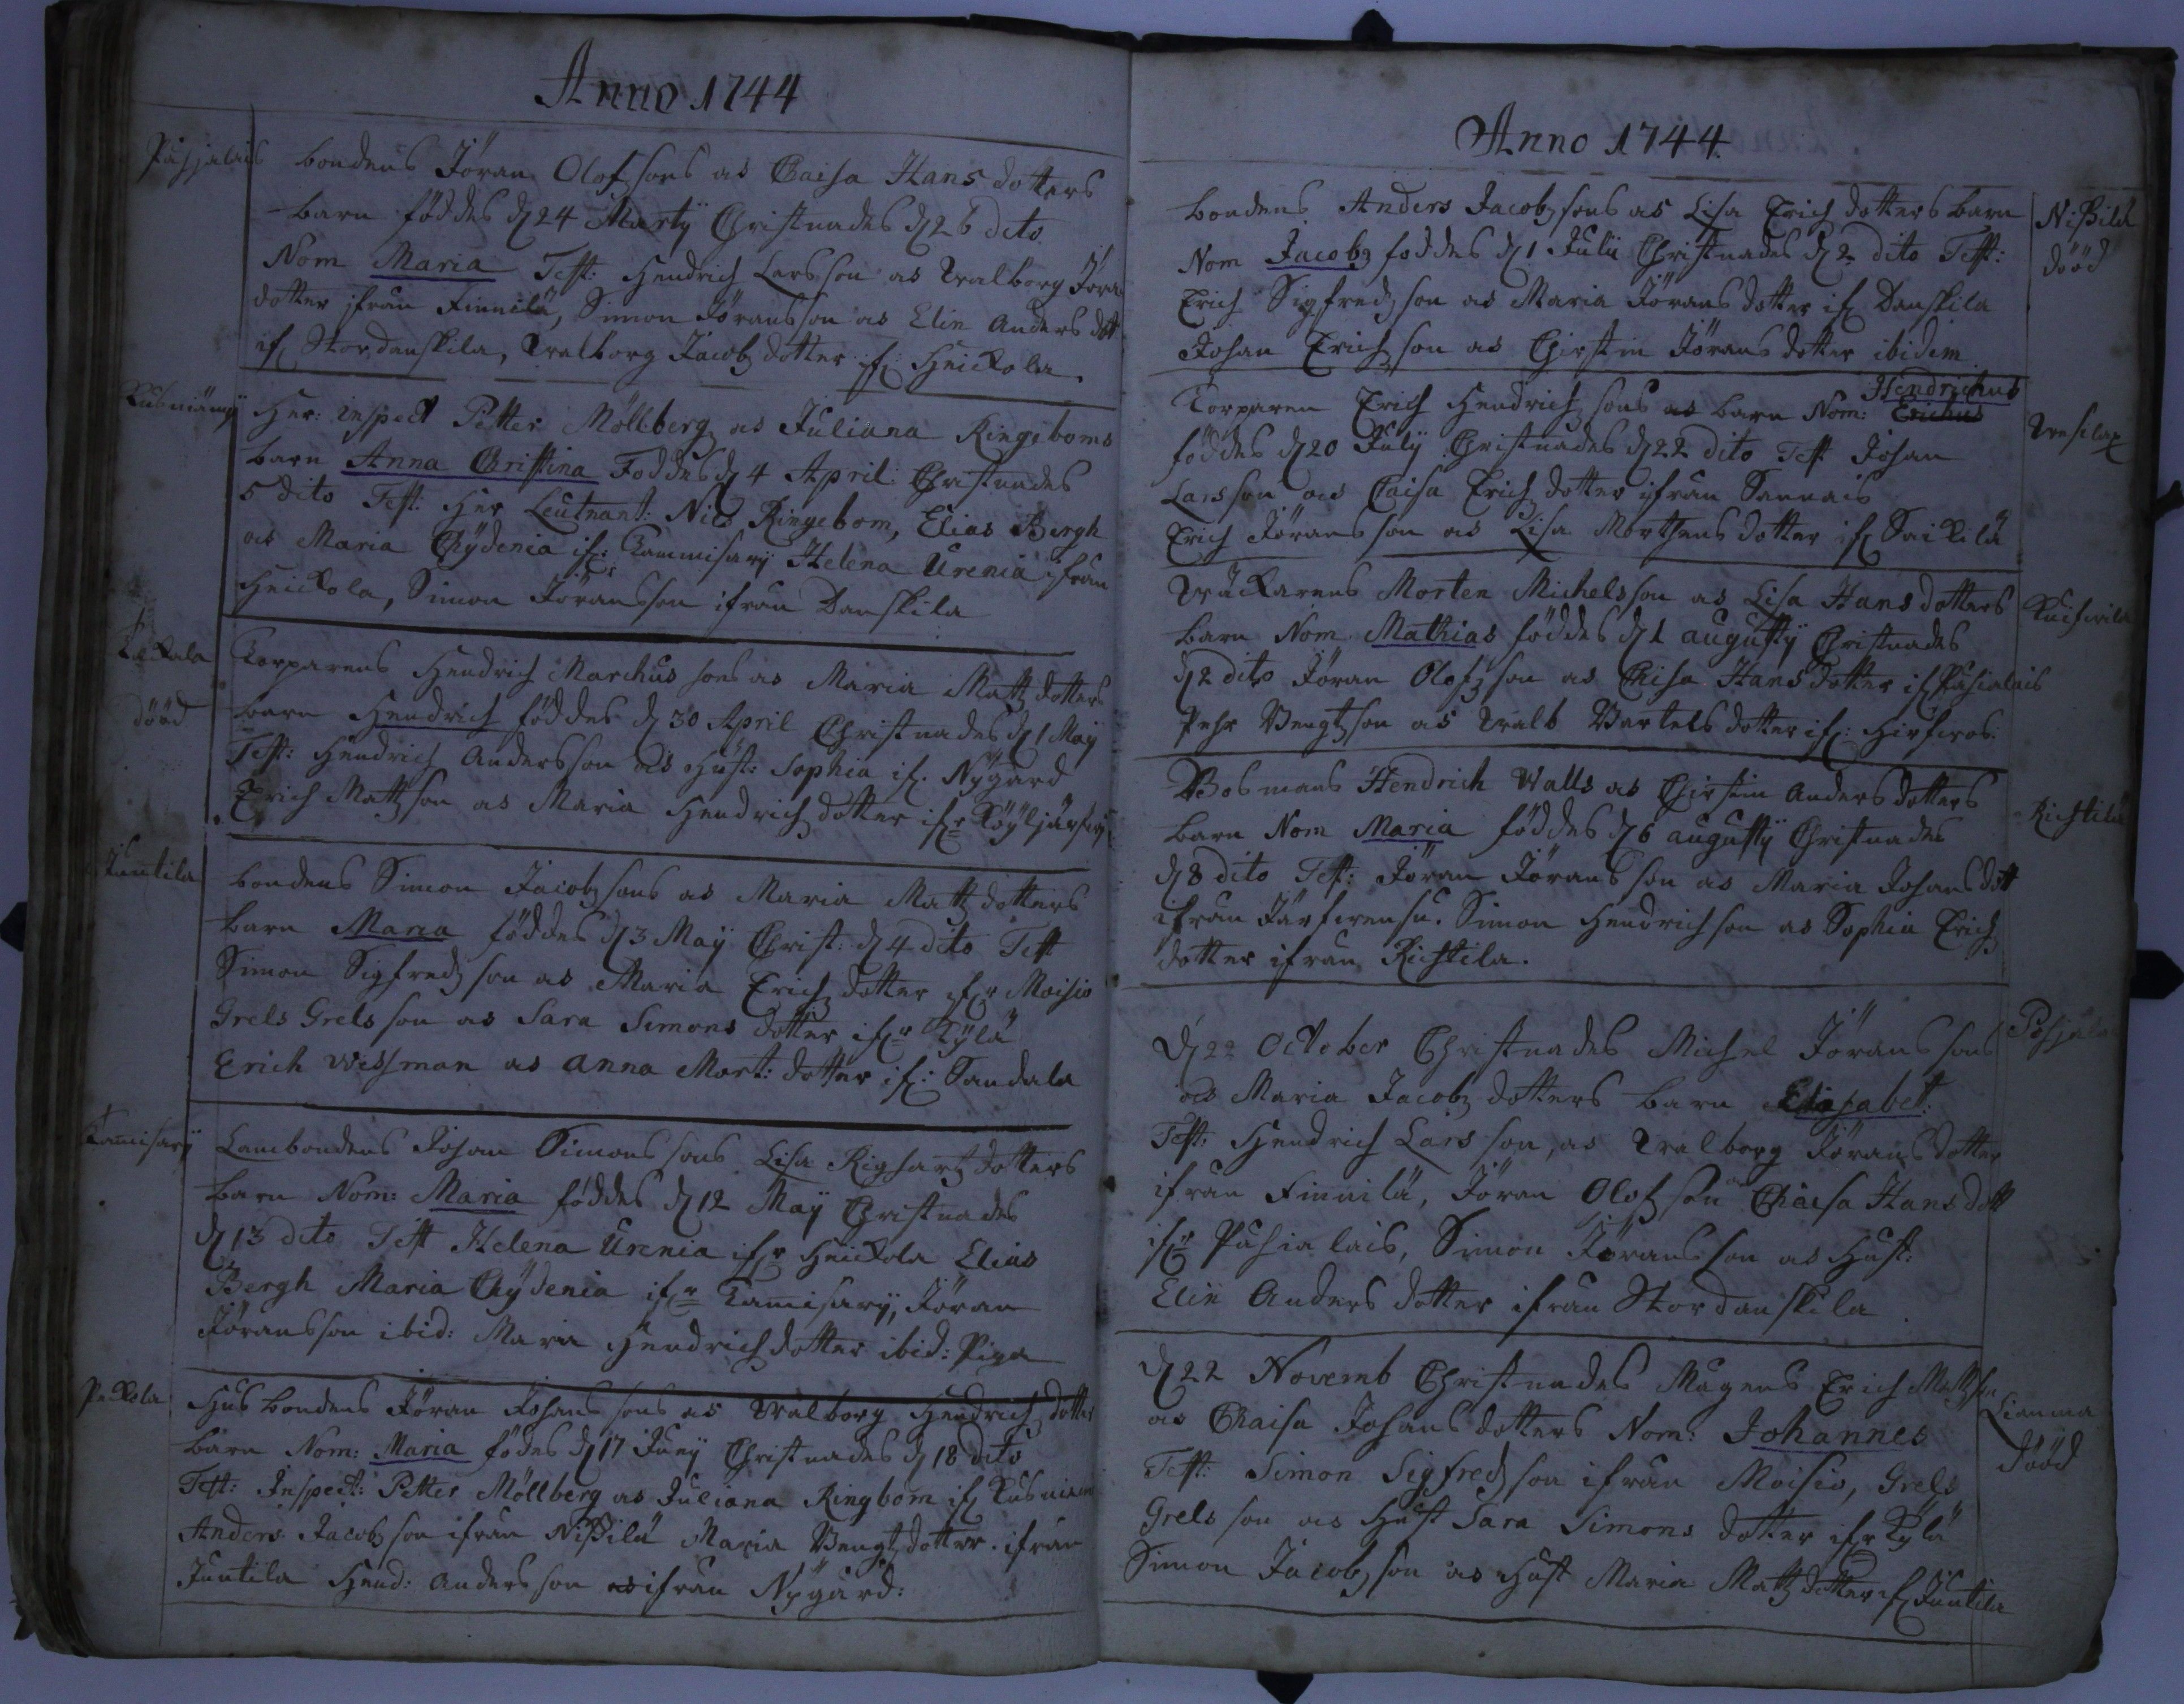 Anno 1744
Påhjalais
bondens Jöran Olofsons as Caisa Hans dotters
barn föddes d 24 Martij Christnades d 26 dito
Nom Maria Test: Hendrich Larsson as Walborg Jöra
dotter ifrån Finnilä, Simon Jöransson as Elin Anders dott
if Stor danskila, Walborg Jacobz dotter if: Heickola.
Kusniämij
Her: inspect Petter Möllberg as Juliana Ringeboms
barn Anna Christina Foddes d 4 April: Christnades
5 dito Test: Her Leutnant: Nils Ringebom, Elias Bergh
as Maria Chÿdenia if: Kammisarij Helena Urenia ifrån
Heickola, Simon Jöransson ifrån Danskila
Kackala
dööd
Torparens Hendrich Marchus sons as Maria Mattz dotters
barn Hendrich föddes d 30 April Christnades d 1 Maij
Test: Hendrich Andersson as Hust: Sophia if. Nÿgård
Erich Mattzson as Maria Hendrich dotter ifr
Juntila
bondens Simon Jacobz sons as Maria Mattz dotters
barn Maria föddes d 3 Maÿ Christ: d 4 dito Test
Simon Sigfredz son as Maria Erich dotter ifr Moisio
Grels Grels son as Sara Simons dotter ifr Kÿlä
Erich wissman as Anna Mort: dotter if: Sandala
Kamisarij
Lambondens Johan Simons sons Lisa Righartz dotters
barn Nom: Maria föddes d 12 Maÿ Christnades
d 13 dito Test Helena Urenia ifr Heickola Elias
Bergh Maria Chÿdenia ifr Kamisarij, Jöran
Jöransson ibid: Maria Hendrichdotter ibid: Piga
Peckola
Husbondens Jöran Johans sons as Walborg Hendrich dotters
barn Nom: Maria födes d 17 Junij Christnades d 18 dito
Test: Inspect: Petter Möllberg as Juliana Ringbom if Kusniem
Anders Jacobz son ifrån Nissilä Maria Bengtzdotter ifrån
Juntila Hend: Andersson as ifrån Nÿgård:
Anno 1744
bondens Anders Jacobz sons as Lisa Erich dotters barn
Nom Jacobz foddes d 1 Julii Christnades d 2 dito Test:
Erich Sigfredz son as Maria Jörans dotter if Danskila
Johan Erich son as Chirstin Jörans dotter ibidem
Nissilä
dööd
Hendrichus
Torparen Erich Hendrich sons as barn Nom: Erichus
föddes d 20 Julij Christnades d 22 dito Test Johan
Larsson as Caisa Erich dotter ifrån Sannais
Erich Jöransson as Lisa Morthens dotter if Saickilä
Morten Michelsson as Lisa Hans dotters
barn Nom Mathias föddes d 1 augustij Christnades
d 2 dito Jöran Olofz son as Chisa Hans dotter if Påhialais
Pehr Bengtz son as Walb Bartels dotter if:
Bosmans Hendrich Walls as Chirstin Anders dotters
barn Nom Maria föddes d 6 augustij Christnades
d 8 dito Test: Jöran Jörans son as Maria Johans dott
ifrån Simon Hendrichson as Sophia Erich
dotter ifrån Richtila.
Richtila
d 22 October Christnades Michel Jörans sons
as Maria Jacobz dotters barn Elisabet:
Test: Hendrich Lars son, as Walborg Jörans dotter
ifrån Finnilä, Jöran Olofz son as Chaisa Hans dott
ifr Påhialais, Simon Jörans son as Hust:
Elin Anders dotter ifrån Stordanskila
d 22 Novemb Christnades Magens Erich Mattzson
as Chaisa Johans dotters Nom: Johannes
Test: Simon Sigfredz son ifrån Moisio, Grels
Grels son as Hust Sara Simons dotter ifr Kÿlä
Simon Jacobz son as Hust Maria Mattz dotter if Juntila
Lianma
dööd